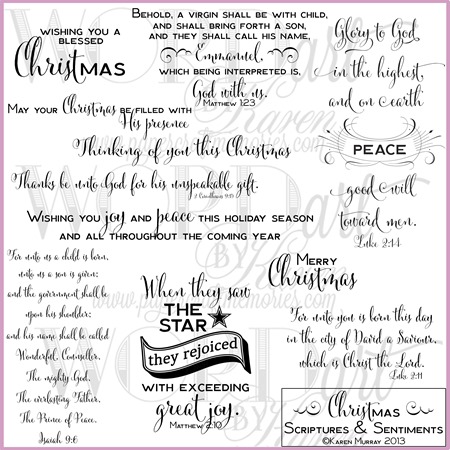 WISHING YOU A
BLESSED
Christmas
BEHOLD, A VIRGIN SHALL BE WITH CHILD,
AND SHALL BRING FORTH A SON,
AND THEY SHALL CALL HIS NAME,
Emmanuel,
WHICH BEING INTERPRETED IS,
God with us.
MATTHEW 1:23
Glory to God
in the highest,
and on earth
PEACE
good will
toward men.
Luke 2:14
MAY YOUR Christmas BE FILLED WITH
His presence
Thinking of you this Christmas
Thanks be unto God for his unspeakable gift.
2 Corinthians 9:15
WISHING YOU joy AND peace THIS HOLIDAY SEASON
AND ALL THROUGHOUT THE COMING YEAR
For unto us a child is born,
unto us a son is given:
and the government shall be
upon his shoulder:
and his name shall be called
Wonderful, Counsellor,
The mighty God,
The everlasting Father,
The Prince of Peace.
Isaiah 9:6
When they saw
THE STAR
they rejoiced
WITH EXCEEDING
great joy.
MATTHEW 2:10
MERRY
Christmas
For unto you is born this day
in the city of David a Saviour,
which is Christ the Lord.
Luke 2:11
Christmas
SCRIPTURES & SENTIMENTS
©KAREN MURRAY 2013